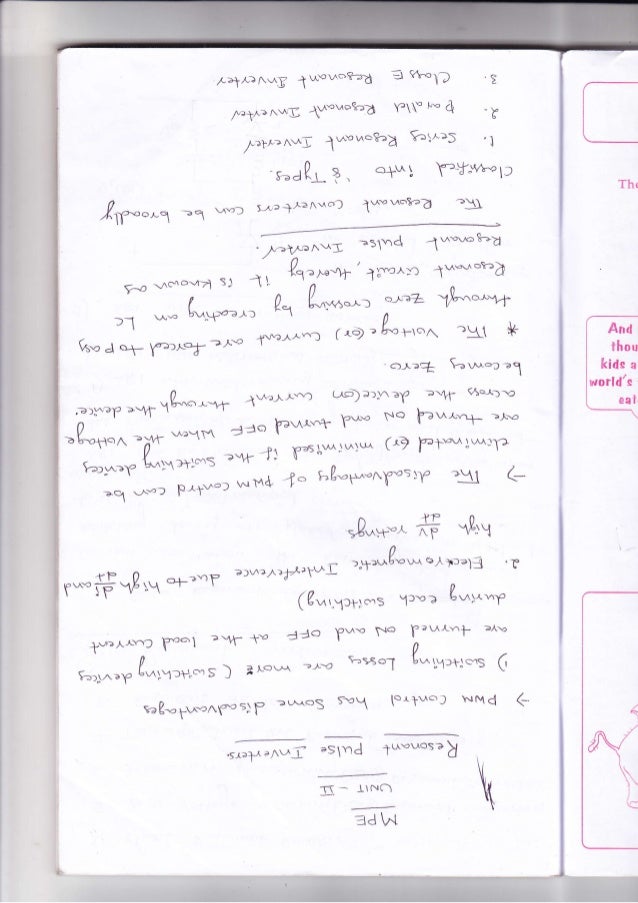 MPE
UNIT - II
Resonant Pulse Inverters
→ PWM Control has some disadvantages
1) Switching Losses are more (Switching devices
are turned ON and OFF at the load current
during each switching)
2. Electromagnetic Interference due to high di/dt and
high dv/dt ratings
→ The disadvantages of PWM Control can be
eliminated (or) minimised if the switching devices
are turned ON and turned OFF when the voltage
across the device (or) current through the device
becomes zero.
* The Voltage (or) current are forced to pass
through zero crossing by creating an LC
Resonant circuit, thereby it is known as
Resonant pulse Inverter.
The Resonant Converters can be broadly
Classified into 8 Types.
1. Series Resonant Inverter
2. parallel Resonant Inverter
3. Class E Resonant Inverter
The
And
thou
kids a
world's
eat